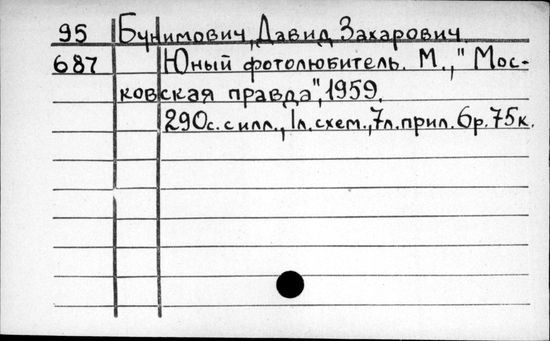 95 Бунимович, Давид Захарович.
687 Юный фотолюбитель. М., "Мос-
ковская правда", 1959.
290с. с илл., 1л. схем., 7л. прил. 6р. 75к.